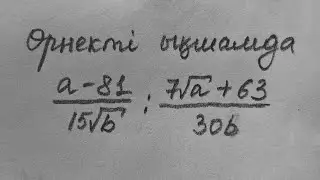 Өрнекті ықшамда
(a-81)/(15√b) : (7√a+63)/(30b)